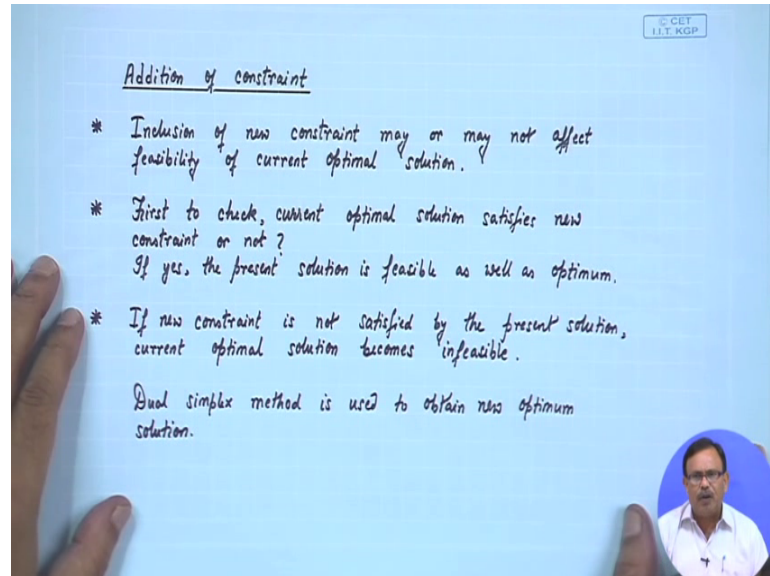 © CET
I.I.T. KGP
Addition of constraint
* Inclusion of new constraint may or may not affect
feasibility of current optimal solution.
* First to check, current optimal solution satisfies new
constraint or not?
If yes, the present solution is feasible as well as optimum.
* If new constraint is not satisfied by the present solution,
current optimal solution becomes infeasible.
Dual simplex method is used to obtain new optimum
solution.